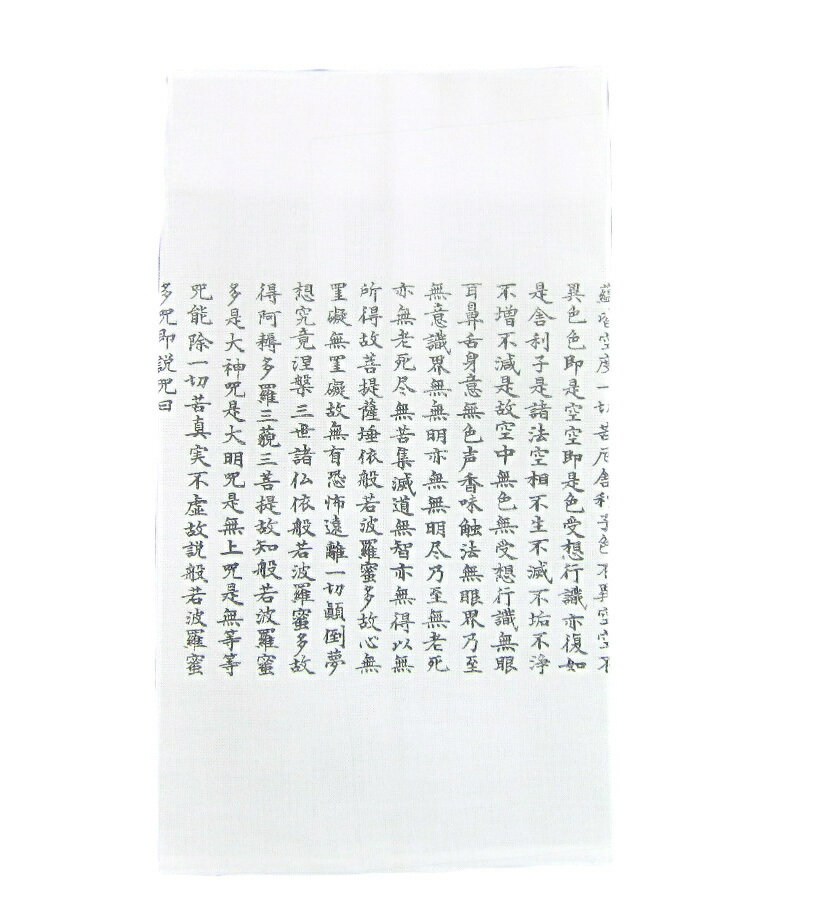 蘊皆空度一切苦厄舎利子色不異空空不
異色色即是空空即是色受想行識亦復如
是舎利子是諸法空相不生不滅不垢不浄
不増不減是故空中無色無受想行識無眼
耳鼻舌身意無色声香味触法無眼界乃至
無意識界無無明亦無無明尽乃至無老死
亦無老死尽無苦集滅道無智亦無得以無
所得故菩提薩埵依般若波羅蜜多故心無
罣礙無罣礙故無有恐怖遠離一切顛倒夢
想究竟涅槃三世諸仏依般若波羅蜜多故
得阿耨多羅三藐三菩提故知般若波羅蜜
多是大神咒是大明咒是無上咒是無等等
咒能除一切苦真実不虚故説般若波羅蜜
多咒即説咒曰